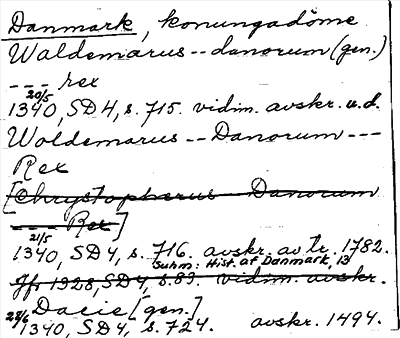 Danmark, konungadöme
Waldemarus -- danorum (gen.)
--- rex
20/5
1340, SD4, s. 715. vidim. avskr. u.d.
Woldemarus -- Danorum ---
Rex
[Chrystopherus Danorum
--- Rex]
21/5
1340, SD4, s. 716. avskr. av tr. 1782.
Suhm: Hist. af Danmark, 13
Jfr 1328, SD4, s. 83. vidim. avskr.
Dacie [gen.]
1340, SD4, s. 724. avskr. 1494.